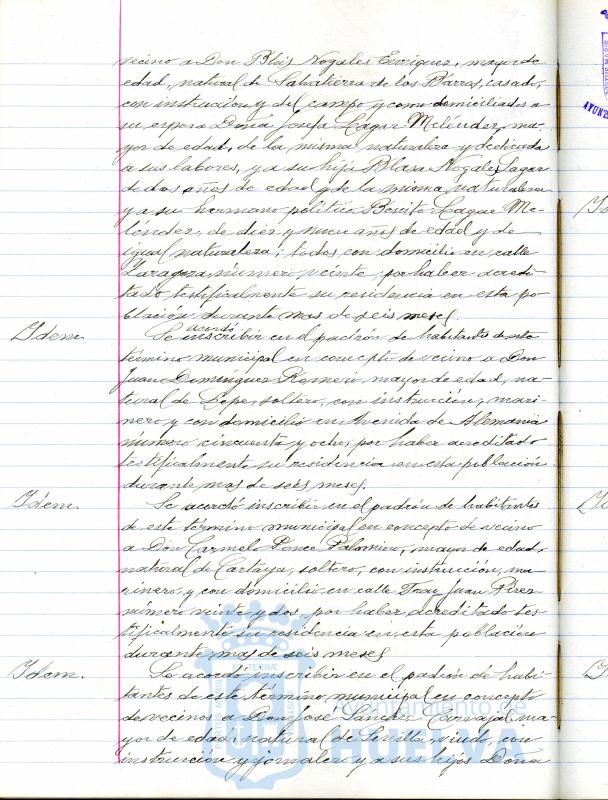 vecino a Don Blas Nogales Enriquez, mayor de
edad, natural de Salvatierra de los Barros, casado,
con instrucción y del campo y como domiciliados a
su esposa Doña Josefa Lagar Meléndez, ma-
yor de edad, de la misma naturaleza y dedicada
a sus labores, y a su hija Blasa Nogales Lagar
de dos años de edad y de la misma naturaleza
y a su hermano politico Benito Lagar Me-
léndez, de diez y nueve años de edad y de
igual naturaleza; todos con domicilio en calle
Zaragoza número veinte, por haber acredi-
tado testificalmente su residencia en esta po-
blación durante mas de seis meses.
Idem. Se acordó inscribir en el padrón de habitantes de este
término municipal en concepto de vecino a Don
Juan Domínguez Romero, mayor de edad, na-
tural de Lepe, soltero, con instrucción, mari-
nero y con domicilio en Avenida de Alemania
número cincuenta y ocho, por haber acreditado
testificalmente su residencia en esta población
durante mas de seis meses.
Idem. Se acordó inscribir en el padrón de habitantes
de este término municipal en concepto de vecino
a Don Carmelo Ponce Palomino, mayor de edad,
natural de Cartaya, soltero, con instrucción, ma-
rinero, y con domicilio en calle Fray Juan Pérez
número veinte y dos, por haber acreditado tes-
tificalmente su residencia en esta población
durante mas de seis meses
Idem. Se acordó inscribir en el padrón de habi-
tantes de este término municipal en concepto
de vecinos a Don José Sanchez Carvajal, ma-
yor de edad, natural de Sevilla, viudo, con
instrucción y jornalero y a sus hijos Doña
Ayuntamiento de
HUELVA